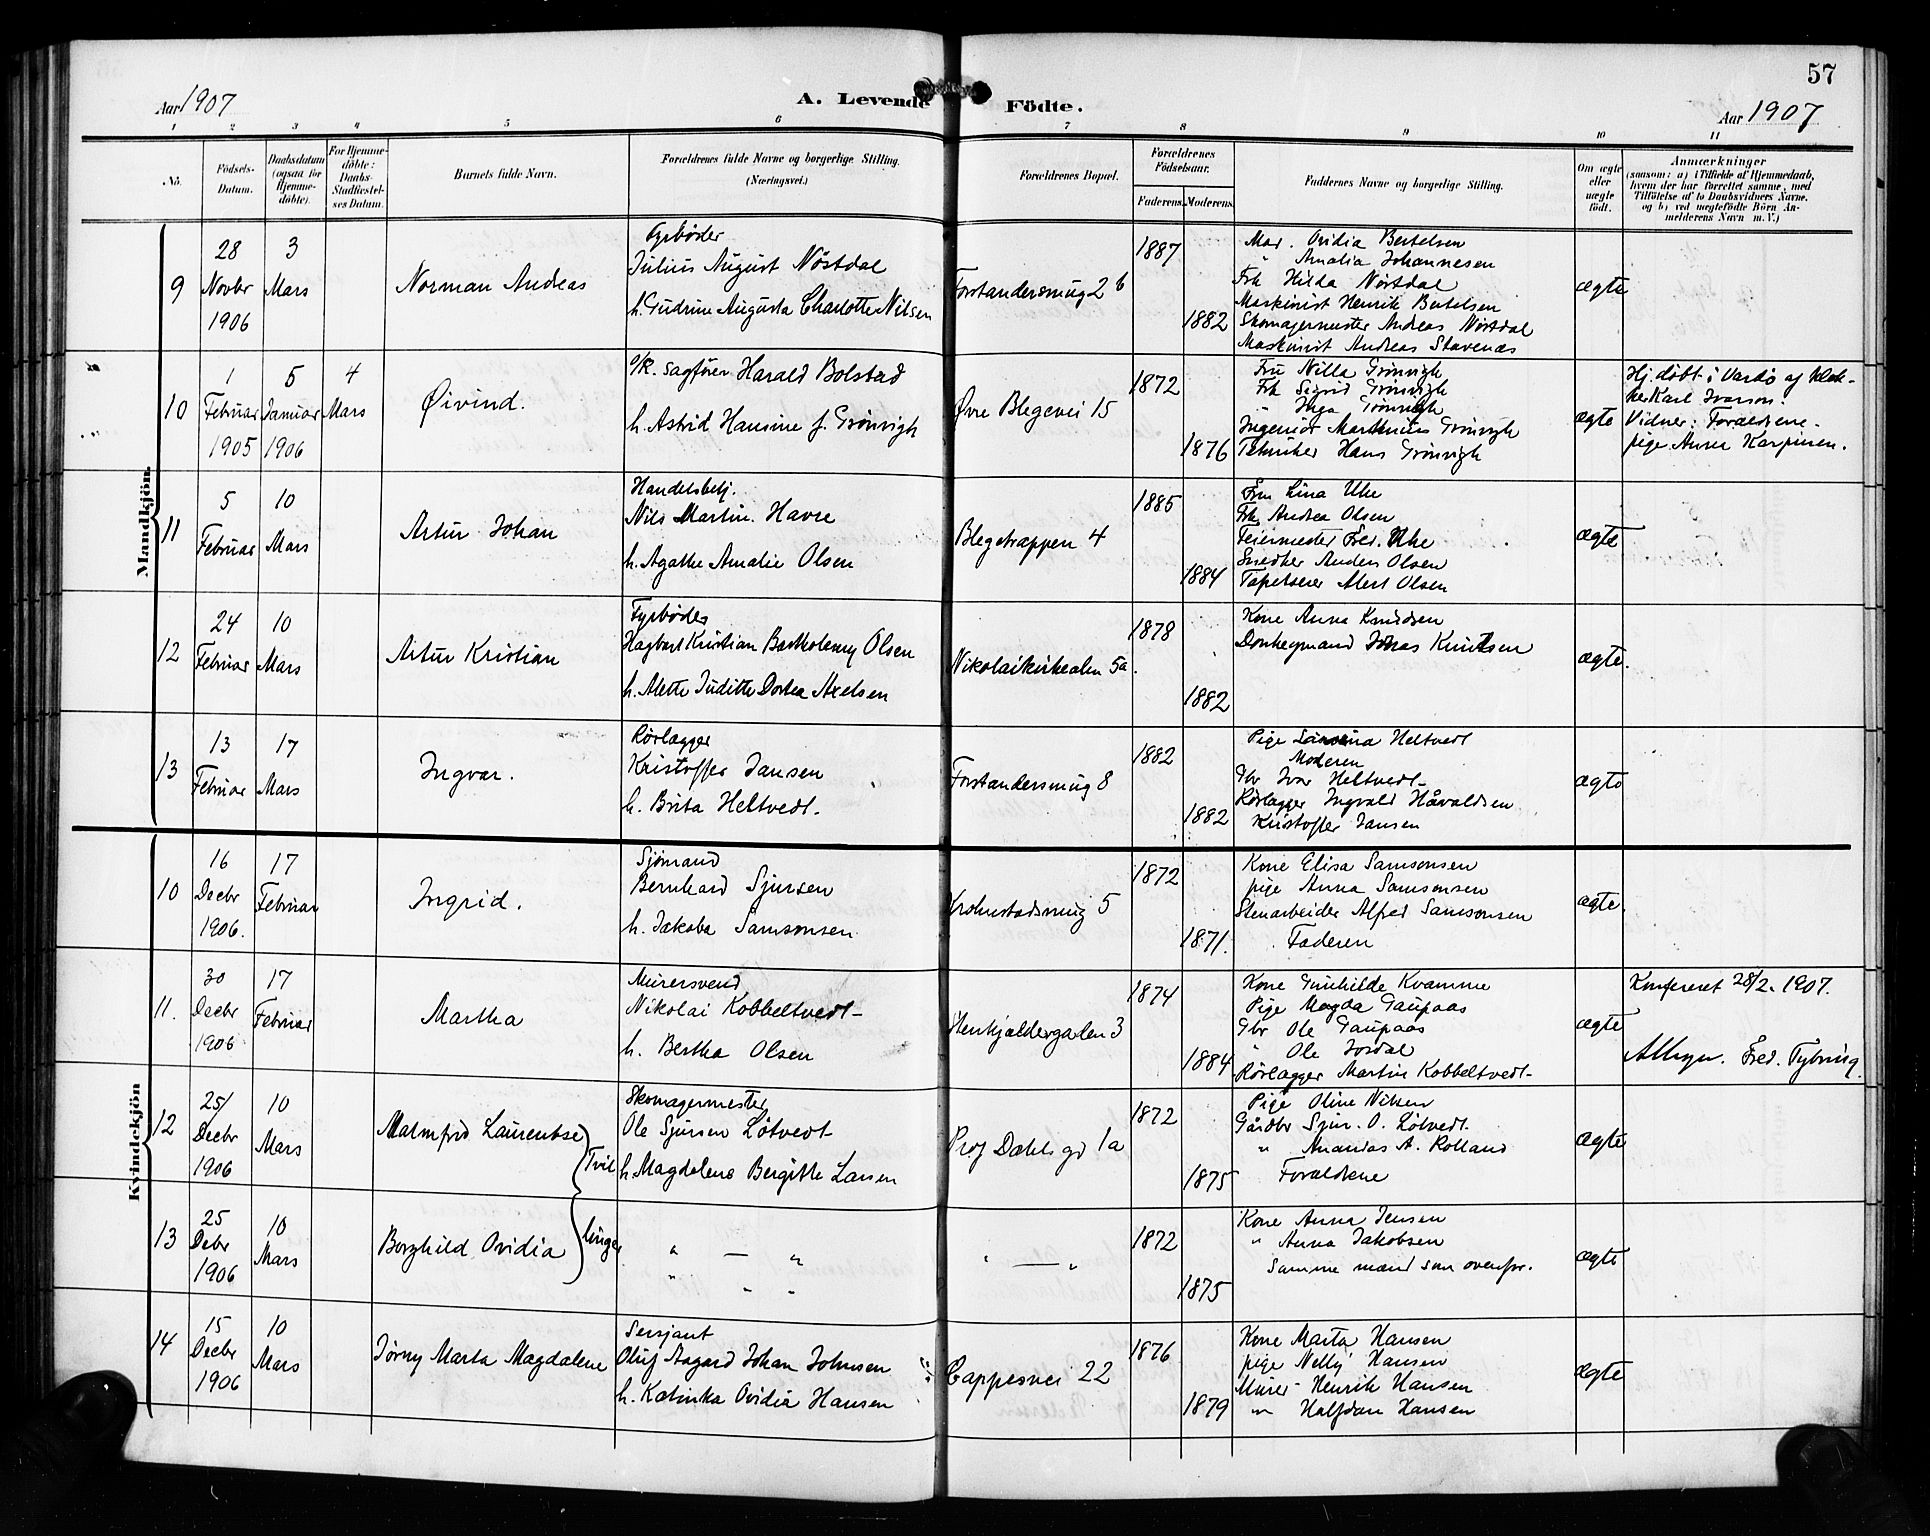 57
Aar 1907
A. Levende Födte.
Aar 1907
1 2 3 4 5 6 7 8 9 10 11
No.
Födsels-Datum.
Daabsdatum (ogsaa for Hjemme-döbte).
For Hjemme-döbte: Daabs-Stadfæstel-ses Datum.
Barnets fulde Navn.
Forældrenes fulde Navne og borgerlige Stilling.
(Næringsvei.)
Forældrenes Bopæl.
Forældrenes Födselsaar.
Faderens. Moderens.
Faddernes Navne og borgerlige Stilling.
Om ægte eller uægte födt.
Anmærkninger
(saasom: a) i Tilfælde af Hjemmedaab,
hvem der har forrettet samme, med
Tilföielse af to Daabsvidners Navne.
og b) ved uægtefödte Börn An-
melderens Navn m. V.)
Mandkjön.
9
28 Novbr 1906
3 Mars
Norman Andreas
Fyrbøder
Julius August Nöstdal
h. Gudrun Augusta Charlotte Nilsen
Forstandersmug 2 b
1887
1882
Mad. Ovidia Bertelsen
" Amalia Johannesen
Frk Hilda Nöstdal
Maskinist Henrik Bertelsen
Skomagermester Andreas Nöstdal
Maskinist Andreas Stavenæs
ægte
10
1 Februar 1905
5 Januar 1906
4 Mars
Øivind.
o/R. sagfører Harald Bolstad
h. Astrid Hansine f. Grönvigh
Øvre Blegevei 15
1872
1876
Fru Nilla Grönvigh
Frk Sigrid Grönvigh
" Inga Grönvigh
Ingeniör Marthinus Grönvigh
Tekniker Hans Grönvigh
ægte
Hj. döbt i Vardö af klok-
ker Karl Ivarson.
Vidner: Forældrene.
pige Anna Karpinen.
11
5 Februar
10 Mars
Artur Johan
Handelsbetj.
Nils Martin Havre
h. Agathe Amalie Olsen
Blegetrappen 4
1885
1884
Fru Lina Uhe
Frk Andrea Olsen
Feiermester Fred. Uhe
Snedker Anders Olsen
Tapetserer Albert Olsen
ægte
12
24 Februar
10 Mars
Artur Kristian
Fyrbøder
Hagbart Kristian Bartholemy Olsen
h. Alette Juditte Dorthea Axelsen
Nikolaikirkealm 5a.
1878
1882
Kone Anna Knudsen
Donkeymand Johas Knudsen
ægte.
13
13 Februar
17 Mars
Ingvar.
Rörlægger
Kristoffer Jansen
h. Brita Heltvedt.
Forstandersmug 8
1882
1882
Pige Heltvedt
Moderen
Gbr Ivar Heltvedt
Rörlægger Ingvald Håvaldsen
Kristoffer Jansen
ægte
Kvindekjön
10
16 Decbr 1906.
17 Februar
Ingrid.
Sjömand
Bernhard Sjursen
h. Jakoba Samsonsen
Krohnstadsmug 5
1872
1871.
Kone Elisa Samsonsen
pige Anna Samsonsen
Stenarbeider Alfred Samsonsen
Faderen
ægte.
11.
30 Decbr 1906
17 Februar
Martha
Murersvend
Nikolai Kobbeltvedt
h. Bertha Olsen
Henkjeldergaten 3
1874
1884
Kone Gunhilde Kvamme
Pige Magda Gaupaas
Gbr Ole Gaupaas
" Ole Jordal
Rörlægger Martin Kobbeltvedt
ægte
Konfereret 28/2. 1907.
Fred. Tybring.
12
25/ Decbr 1906
10 Mars
Malmfrid Laurentse
Tvil
Skomagermester
Ole Sjursen Lötvedt
h. Magdelene Bergitte Larsen
Prof Dahls gd 1a
1872
1875
Pige Oline Nilsen
Gårdbr Sjur. O. Lötvedt.
" Ananias A. Rolland
Forældrene
ægte
13
25 Debr 1906
10 Mars
Borghild Ovidia
linger
" — "
" " "
" — "
1872
1875
Kone Anna Jensen
" Anna Jakobsen
Samme mænd som ovenfor.
ægte
14
15 Decbr 1906
10 Mars
Jörny Marta Magdalene
Sersjant
Oluf Aagard Johan Johnsen
h. Katinka Ovidia Hansen
Cappesvei 22
1876
1879
Kone Marta Hansen
pige Nelly Hansen
Murer Henrik Hansen
" Halfdan Hansen
ægte